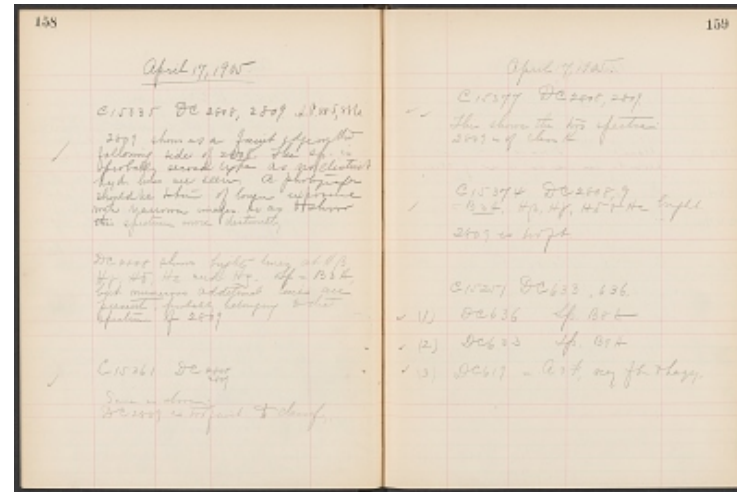 158
April 17, 1905
C15335 DC 2808, 2809
2809 shows as a faint edge on the
following side of 2808. The Sp. is
probably second type as no distinct
hyd. lines are seen. A photograph
should be taken of longer exposure
with narrower images so as to show
this spectrum more distinctly.
DC 2808 shows bright lines at Hβ
Hγ, Hδ, Hε and Hζ. Sp =
but numerous additional lines are
present, probably belonging to the
spectrum of 2809
C 15361 DC 2808
2809
Same as above.
DC 2809 is too faint to classify.
159
April 17, 1905.
C 15377 DC 2808, 2809.
This shows the two spectra
2809 is of class K
C 15374 DC 2808, 9
Hβ, Hγ, Hδ + Hε bright
2809 is
C 15251 DC 633, 636.
(1) DC 636 Sp. B8A
(2) DC 633 Sp. B8A
(3) DC 619 = A5F, very f't & hazy.